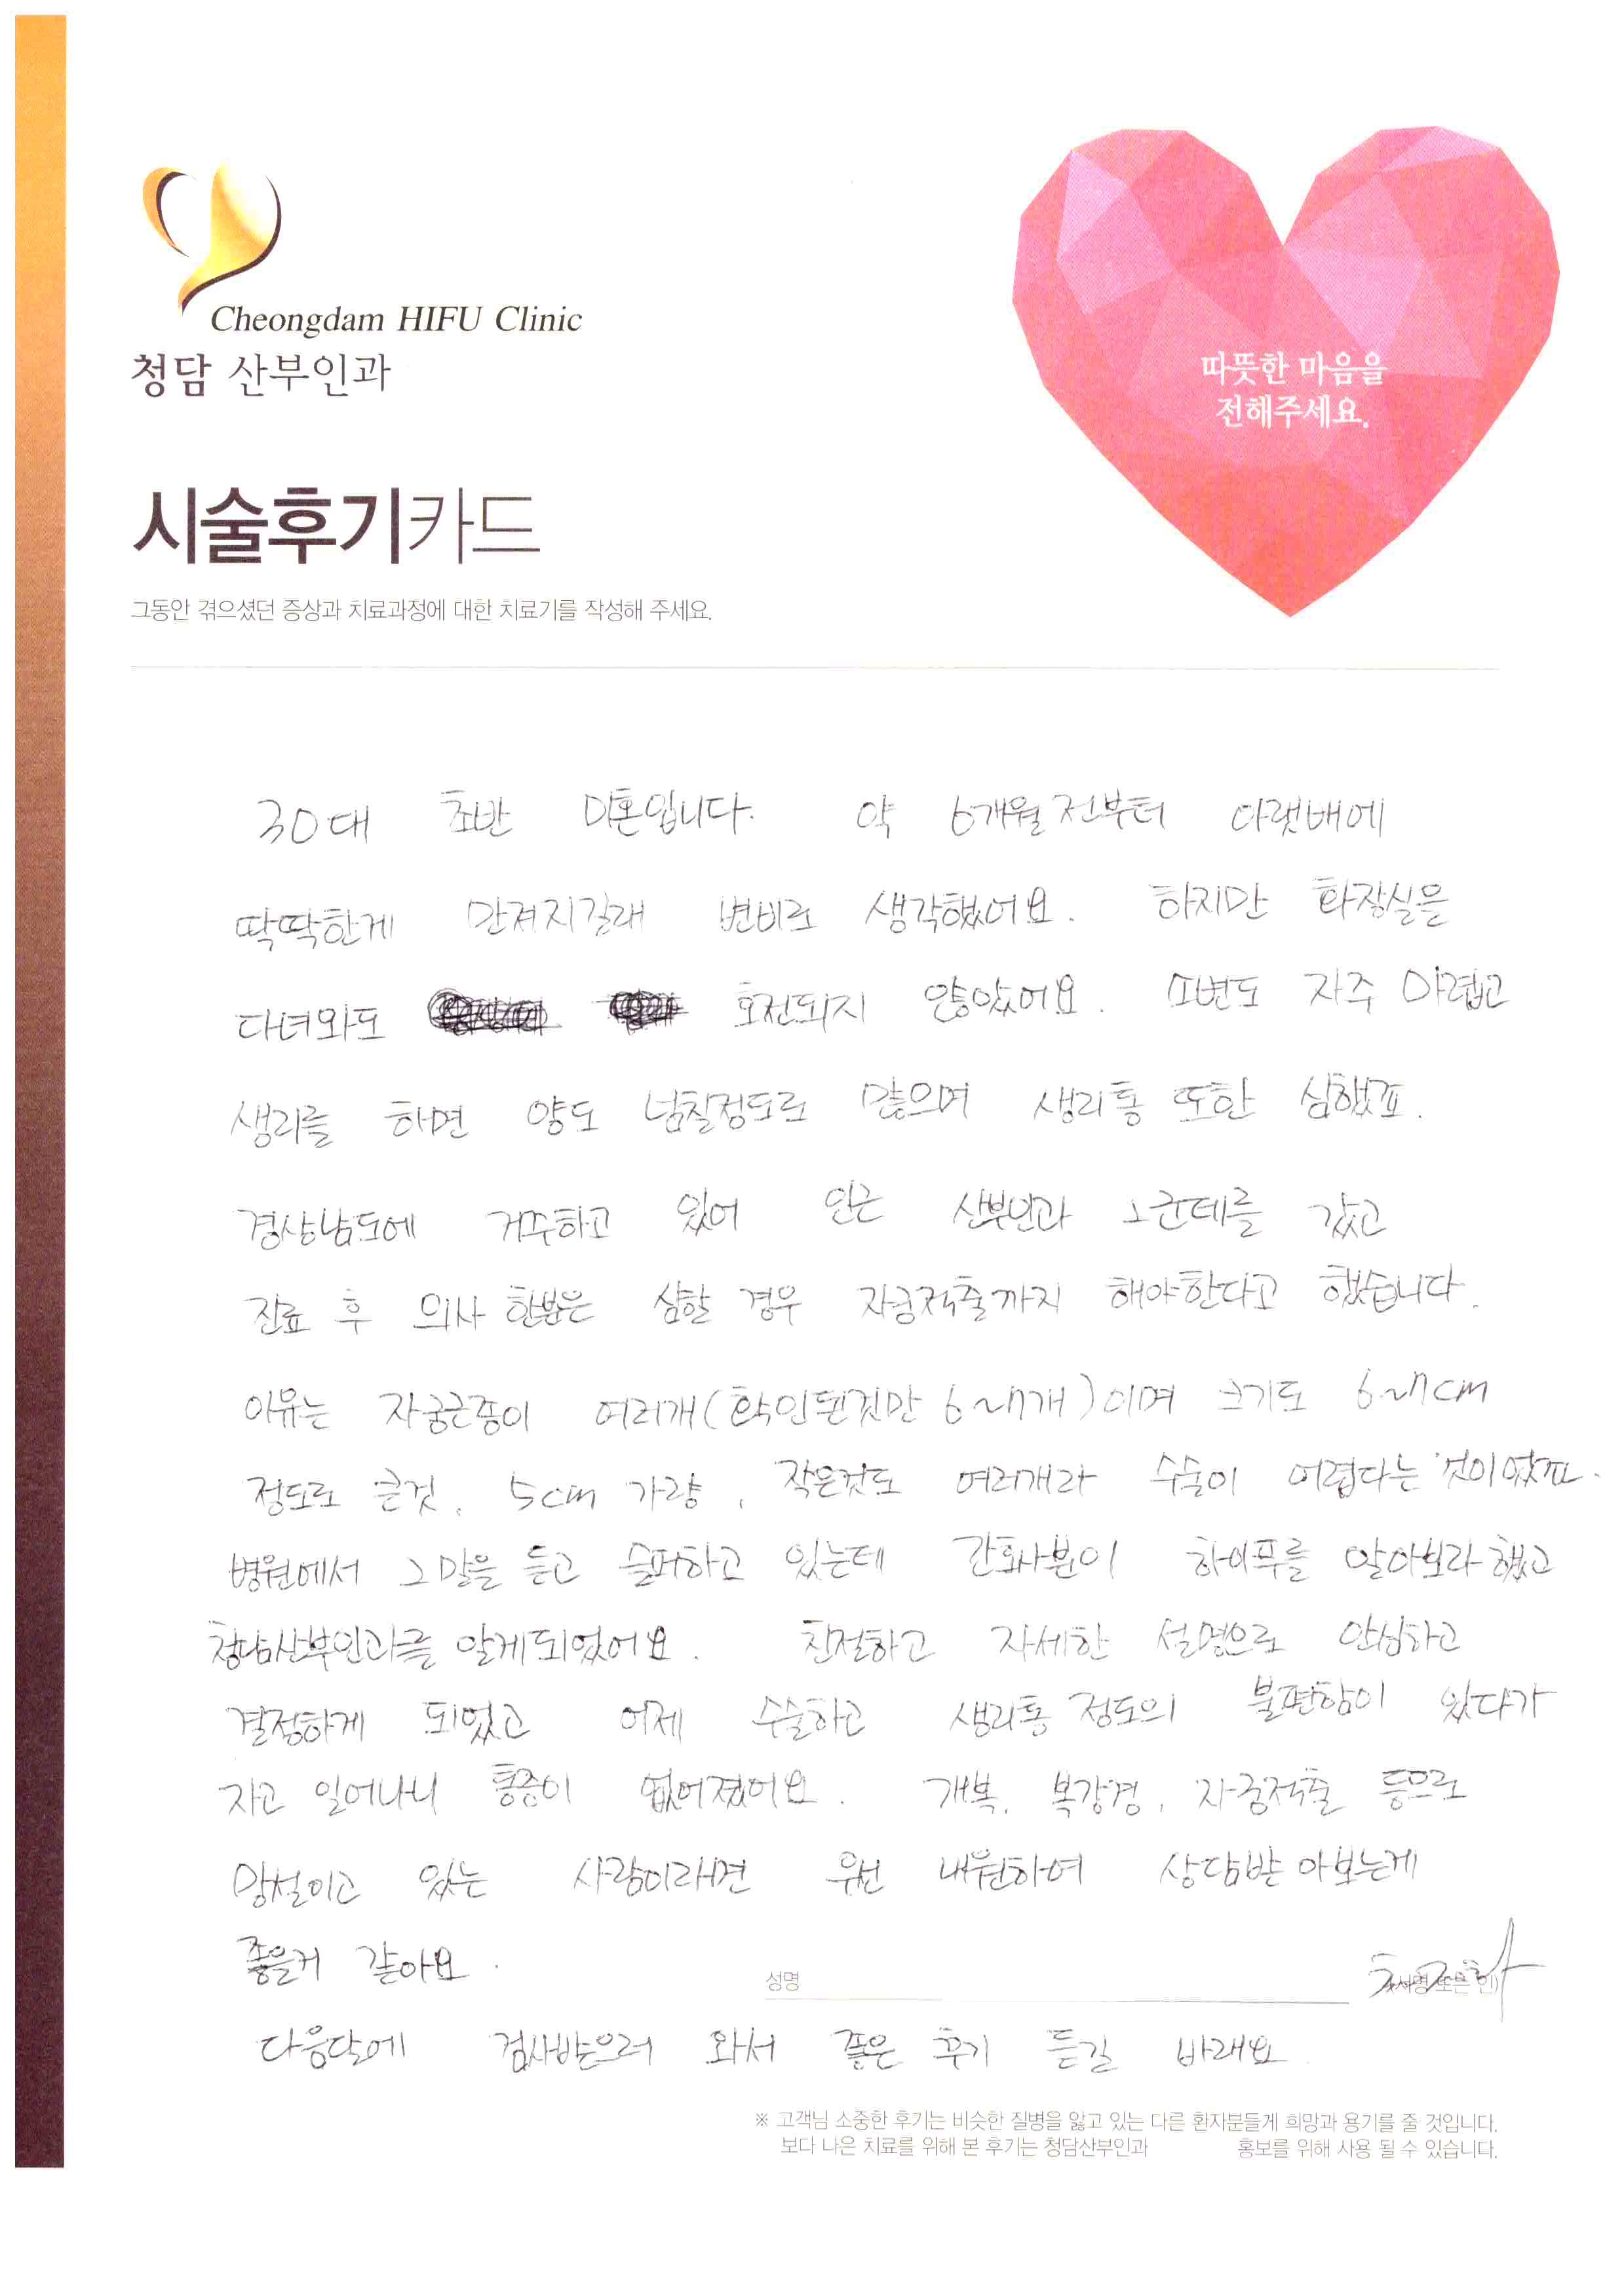 Cheongdam HIFU Clinic
청담 산부인과
따뜻한 마음을
전해주세요.
시술후기카드
그동안 겪으셨던 증상과 치료과정에 대한 치료기를 작성해 주세요.
30대 초반 미혼입니다. 약 6개월 전부터 아랫배에
딱딱한게 만져지길래 변비로 생각했어요. 하지만 화장실을
다녀와도 호전되지 않았어요. 소변도 자주 마렵고
생리를 하면 양도 넘칠정도로 많으며 생리통 또한 심했죠.
경상남도에 거주하고 있어 인근 산부인과 군데를 갔고
진료 후 의사 한분은 심할 경우 자궁적출까지 해야한다고 했습니다.
이유는 자궁근종이 여러개(확인된것만 6~7개)이며 크기도 6~7cm
정도로 큰것, 5cm 가량, 작은것도 여러개라 수술이 어렵다는 것이었죠.
병원에서 그 말을 듣고 슬퍼하고 있는데 간호사분이 하이푸를 알아보라 했고
청담산부인과를 알게되었어요. 친절하고 자세한 설명으로 안심하고
결정하게 되었고 어제 수술하고 생리통 정도의 불편함이 있다가
자고 일어나니 통증이 없어졌어요. 개복, 복강경, 자궁적출 등으로
망설이고 있는 사람이라면 우선 내원하여 상담받아보는게
좋을거 같아요.
성명 (서명 또는 인)
다음달에 검사받으러 와서 좋은 후기 듣길 바래요
※ 고객님 소중한 후기는 비슷한 질병을 앓고 있는 다른 환자분들게 희망과 용기를 줄 것입니다.
보다 나은 치료를 위해 본 후기는 청담산부인과 홍보를 위해 사용 될 수 있습니다.